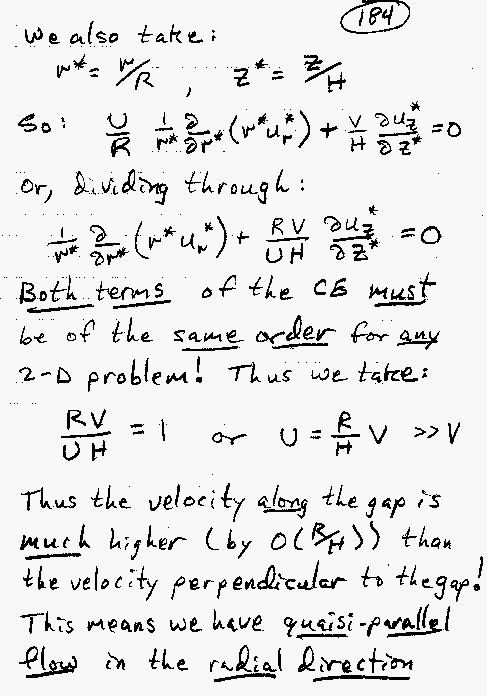 184
We also take:
r* = r/R , z* = z/H
So: U/R 1/r* ∂/∂r* (r* u_r*) + V/H ∂u_z*/∂z* = 0
Or, dividing through:
1/r* ∂/∂r* (r* u_r*) + RV/UH ∂u_z*/∂z* = 0
Both terms of the CE must
be of the same order for any
2-D problem! Thus we take:
RV/UH = 1 or U = R/H V >> V
Thus the velocity along the gap is
much higher (by O(R/H)) than
the velocity perpendicular to the gap!
This means we have quaisi-parallel
flow in the radial direction